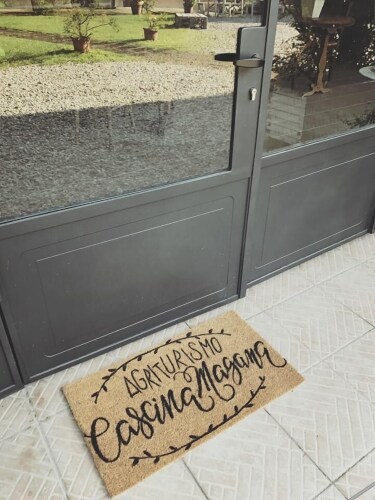 AGRITURISMO
Cascina Magana